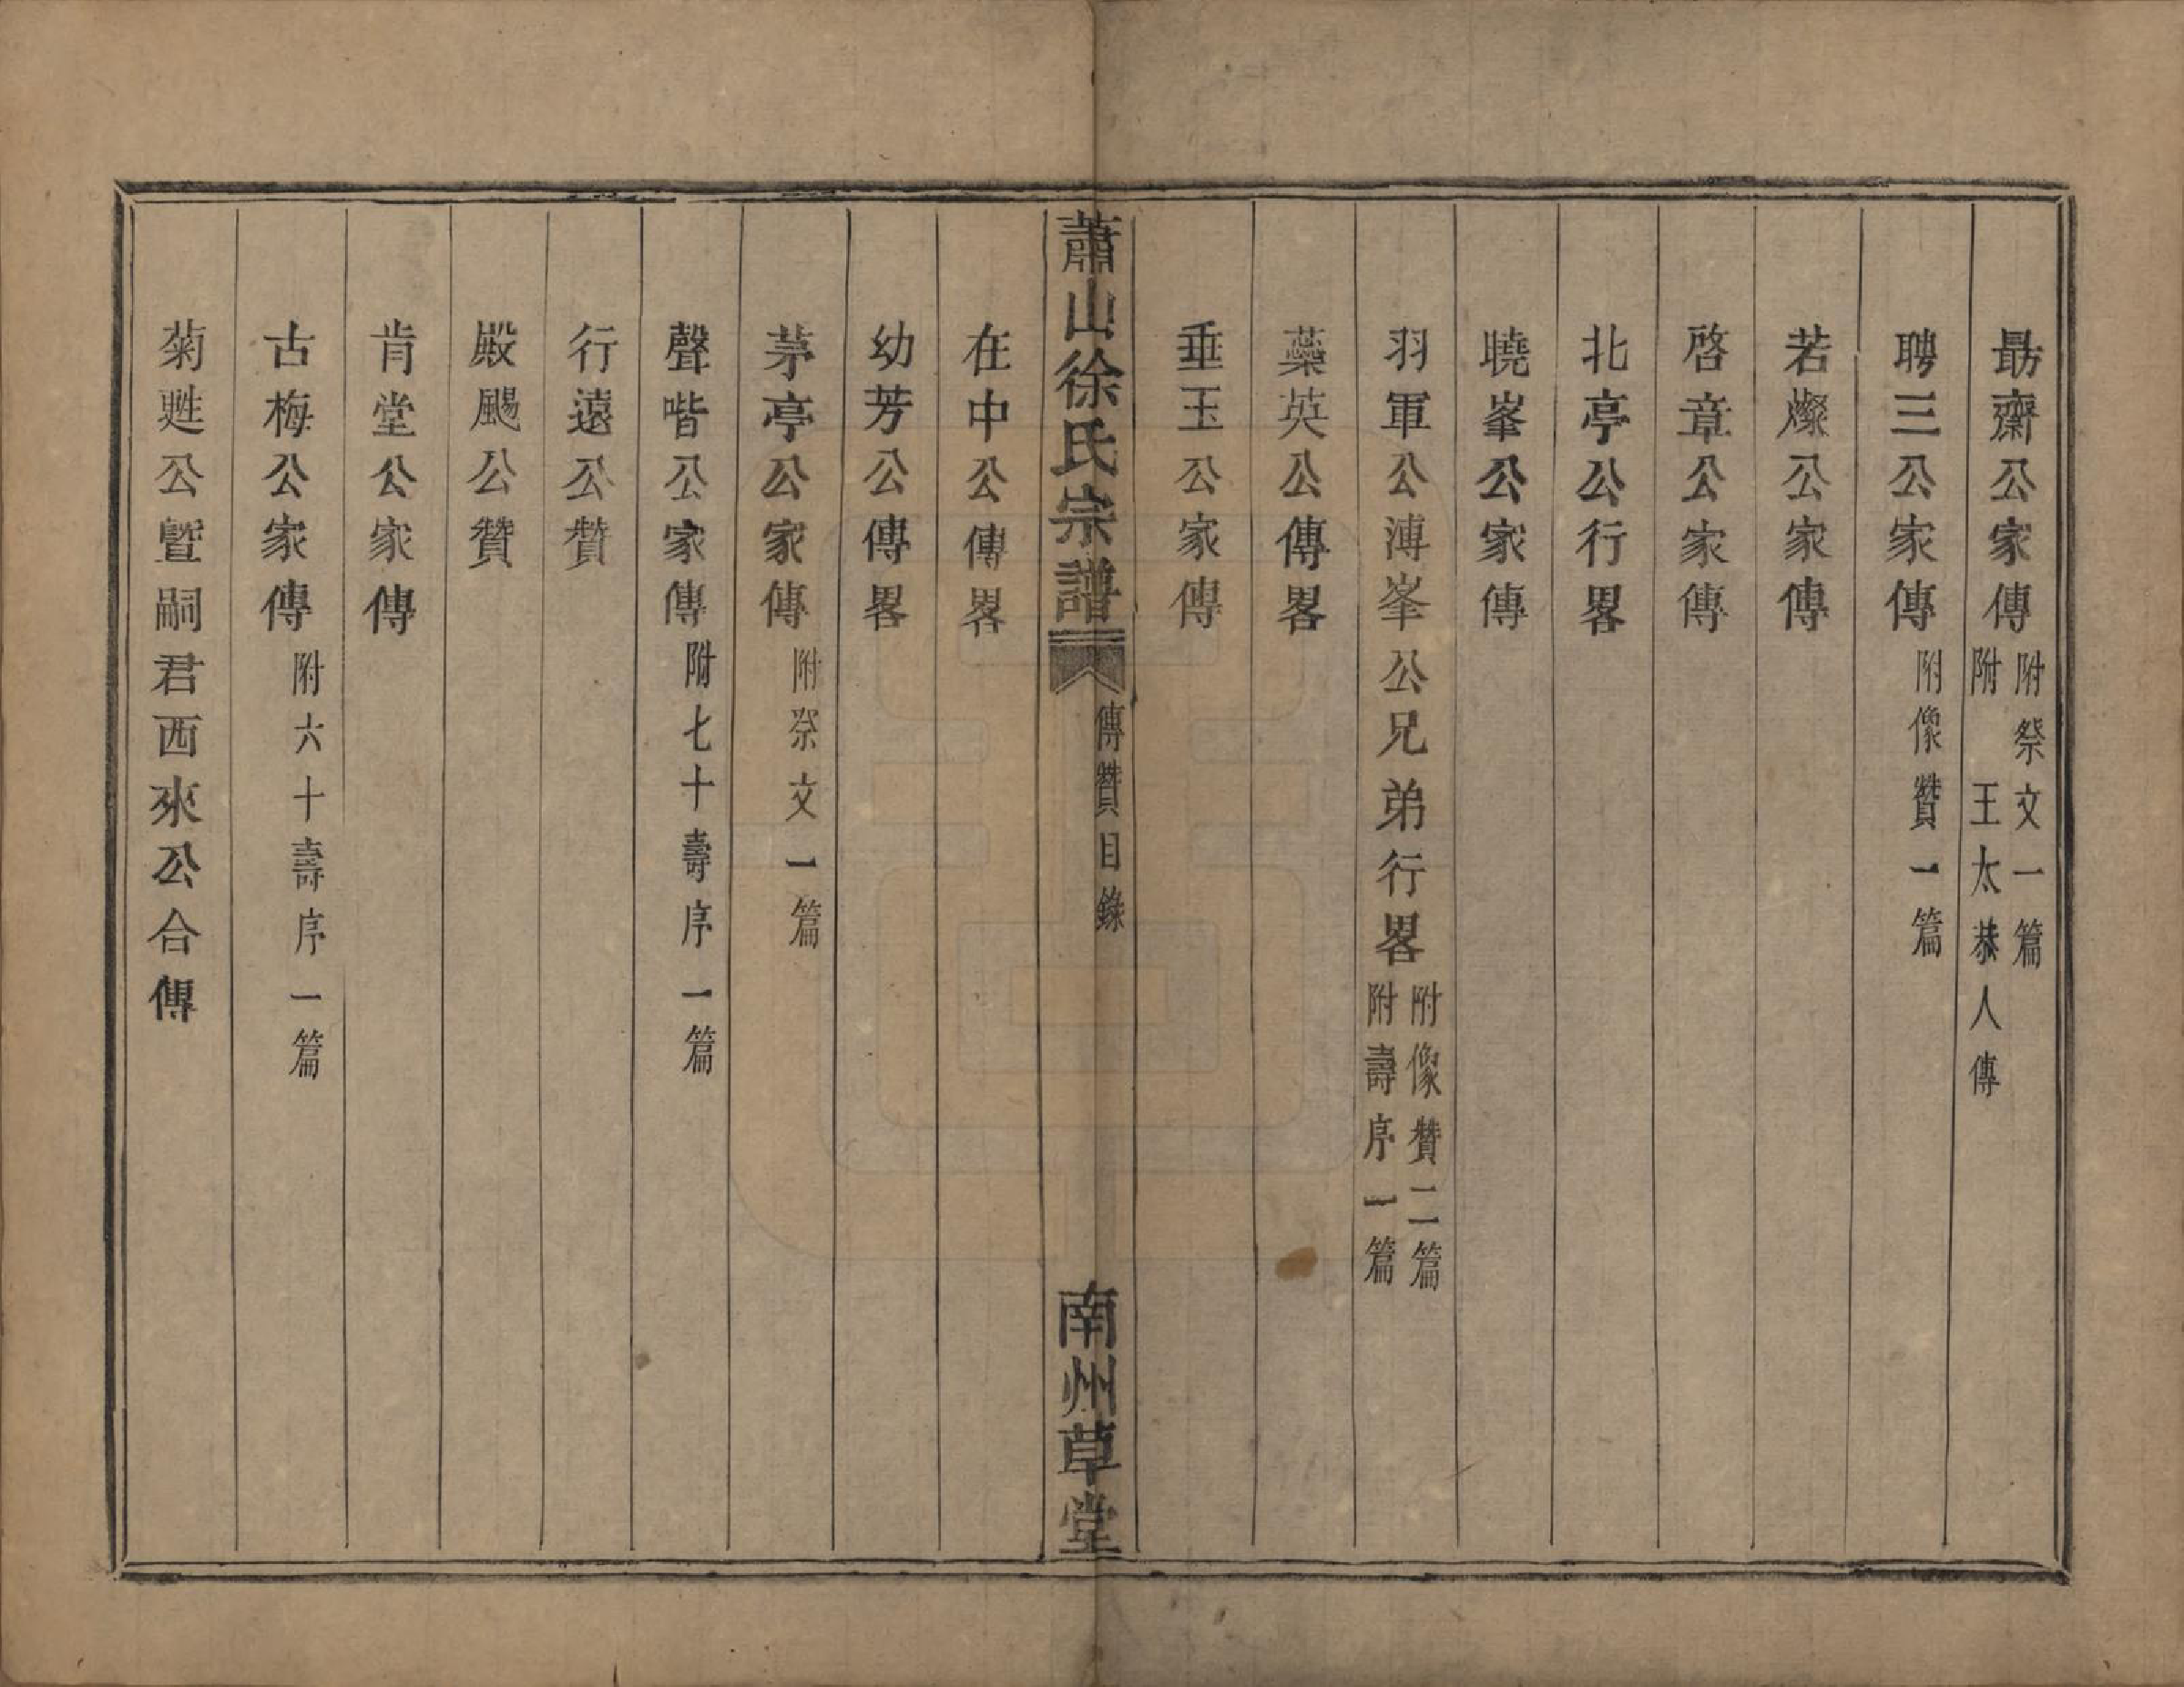 勗齋公家傳附祭文一篇
附 王太恭人傳
聘三公家傳附像贊一篇
若燦公家傳
啓章公家傳
北亭公行畧
曉峯公家傳
羽軍公溥峯公兄弟行畧附像贊二篇
附壽序一篇
藻英公傳畧
垂玉公家傳
蕭山徐氏宗譜 傳贊目錄 南州草堂
在中公傳畧
幼芳公傳畧
茅亭公家傳附祭文一篇
聲喈公家傳附七十壽序一篇
行遠公贊
殿颺公贊
肯堂公家傳
古梅公家傳附六十壽序一篇
菊甦公暨嗣君西來公合傳